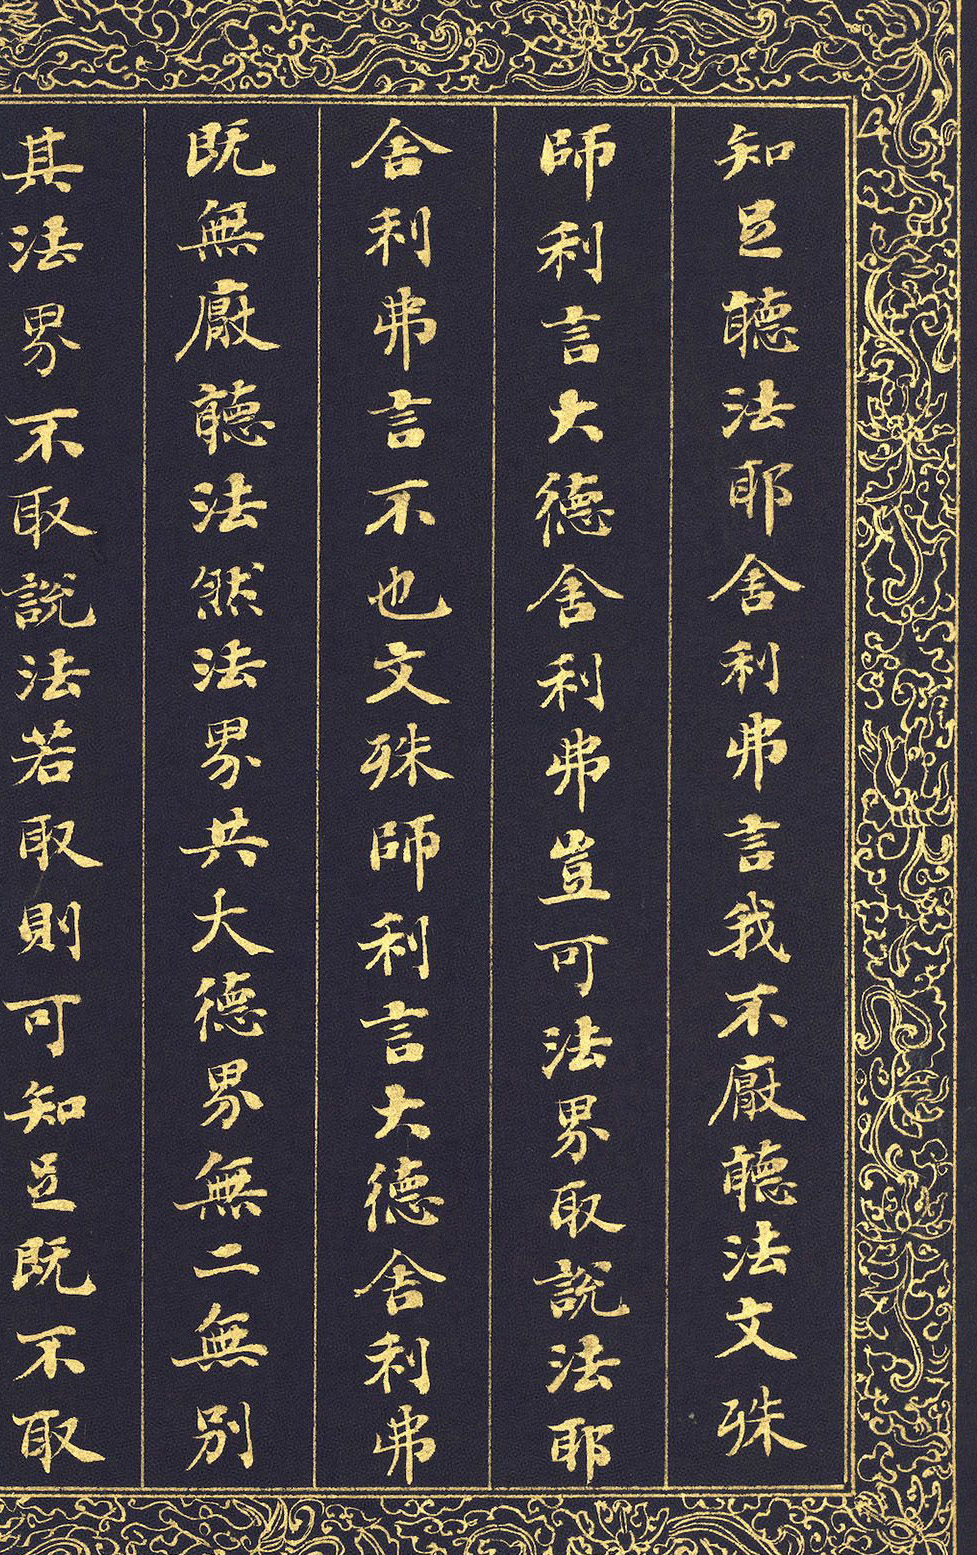 知足聽法耶舍利弗言我不廄聽法文殊
師利言大德舍利弗豈可法界取說法耶
舍利弗言不也文殊師利言大德舍利弗
既無廄聽法然法界共大德界無二無別
其法界不取說法若取則可知足既不取